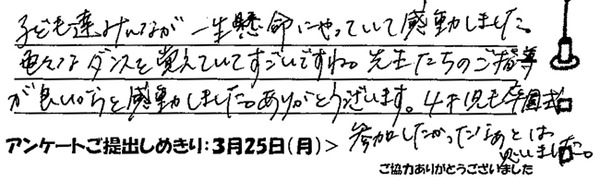 子ども達みんなが一生懸命にやっていて感動しました。
色々なダンスを覚えていてすごいですね。先生たちのご指導
が良いからと感動しました。ありがとうございます。4才児も卒園式
参加したかったなあとは
思いました。
アンケートご提出しめきり:3月25日(月)>
ご協力ありがとうございました